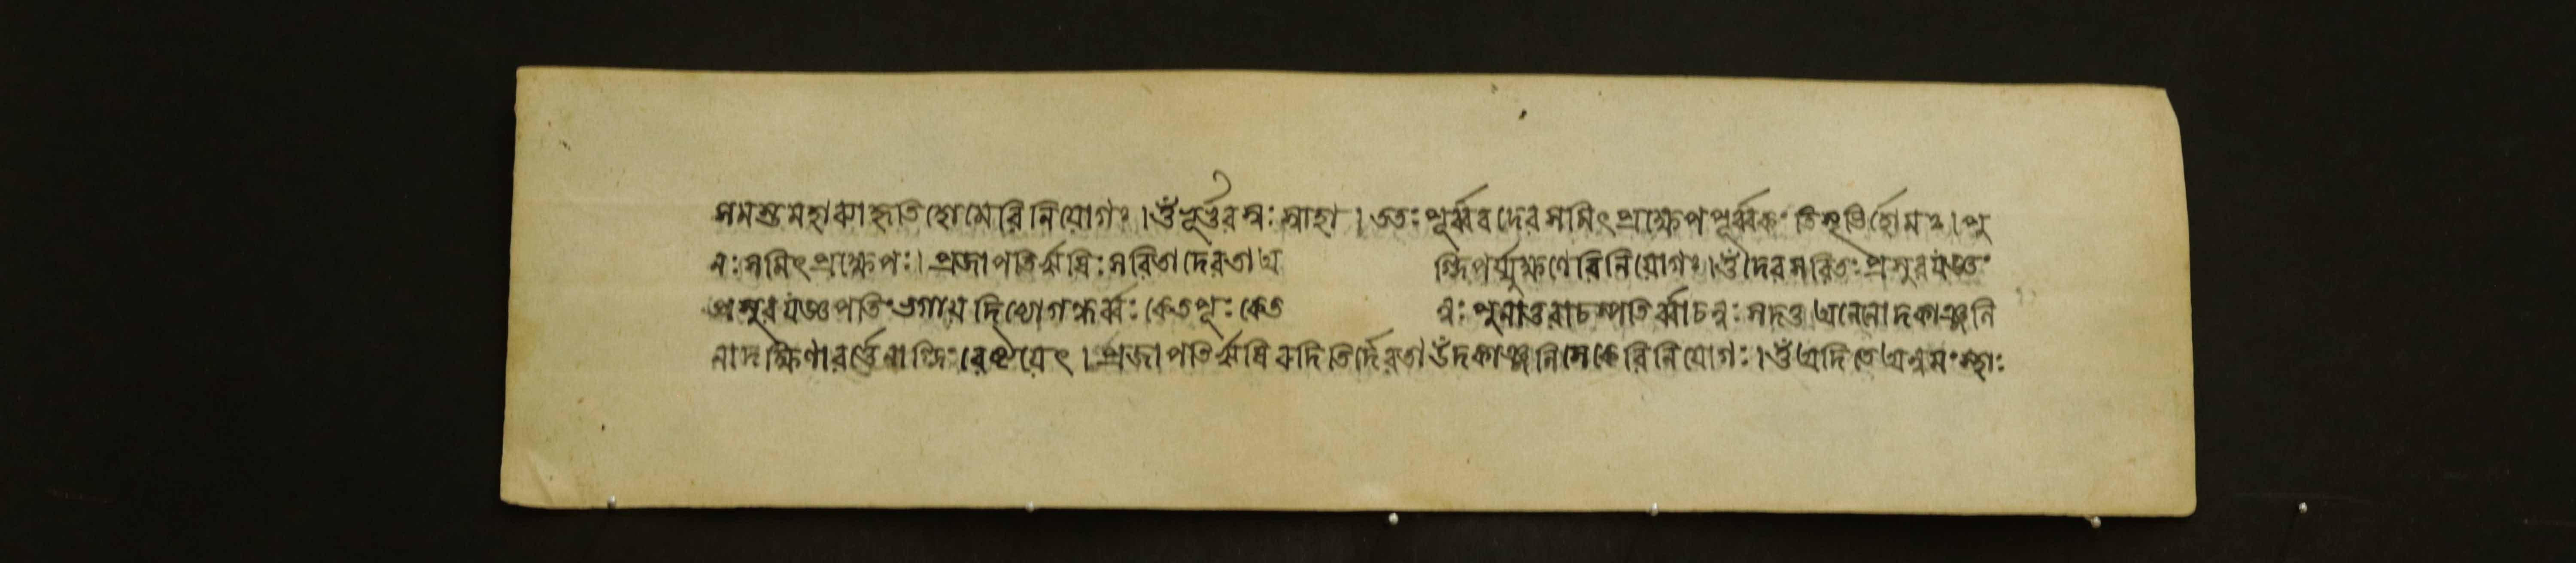 সমস্তমহাব্যাহৃতিহোমে বিনিয়োগঃ । ওঁ ভূর্ভুবস্বঃ স্বাহা । ততঃ পূর্ব্ববদেব সমিৎপ্রক্ষেপপূর্ব্বকং তিসৃভির্হোমঃ । পু
নঃ সমিৎপ্রক্ষেপঃ । প্রজাপতিঋষিঃ সবিতা দেবতা অ গ্নিপর্য্যুক্ষণে বিনিয়োগঃ । ওঁ দেব সবিতঃ প্রসুব যজ্ঞং
প্রসুব যজ্ঞপতিং ভগায় দিব্যো গন্ধর্ব্বঃ কেতপূঃ কেত ন্নঃ পুনাতু বাচস্পতির্ব্বাচন্নঃ সদতু অনেনোদকাঞ্জলি
না দক্ষিণাবর্ত্তেনাগ্নিং বেষ্টয়েৎ । প্রজাপতিঋষিরদিতির্দেবতা উদকাঞ্জলিসেকে বিনিয়োগঃ । ওঁ অদিতে অন্বমংস্থাঃ